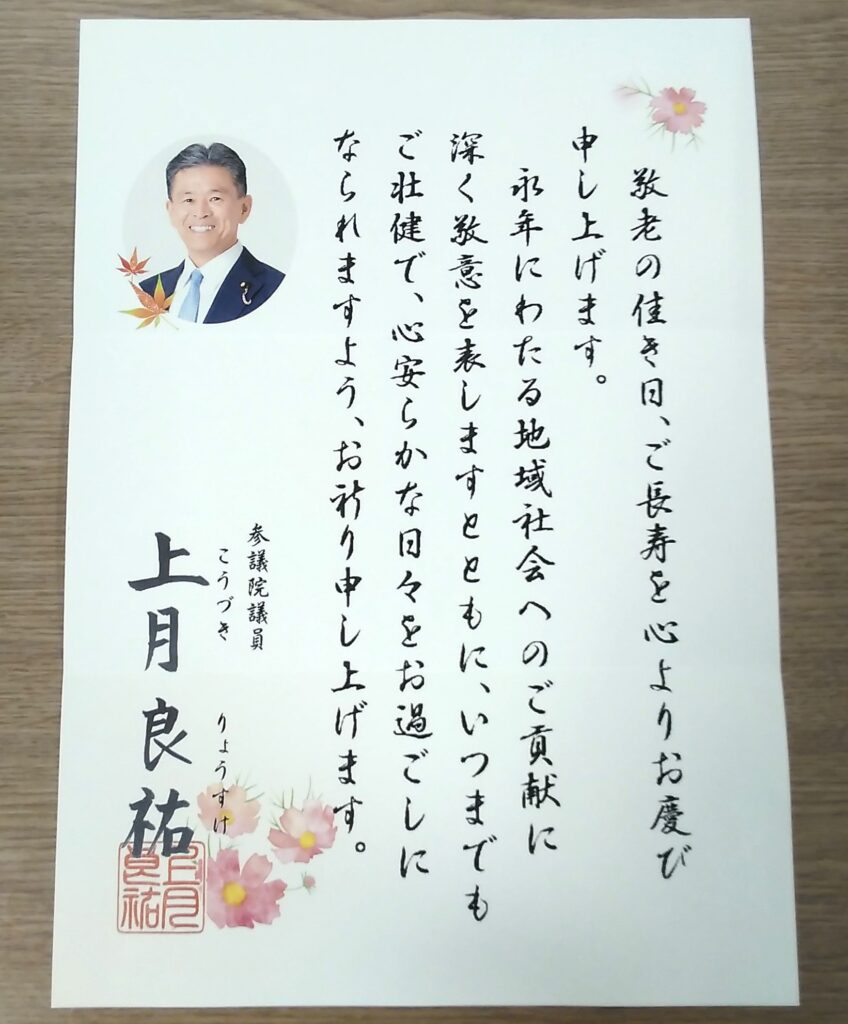 敬老の佳き日、ご長寿を心よりお慶び
申し上げます。
永年にわたる地域社会へのご貢献に
深く敬意を表しますとともに、いつまでも
ご壮健で、心安らかな日々をお過ごしに
なられますよう、お祈り申し上げます。
参議院議員
こうづき りょうすけ
上月良祐
上月
良祐